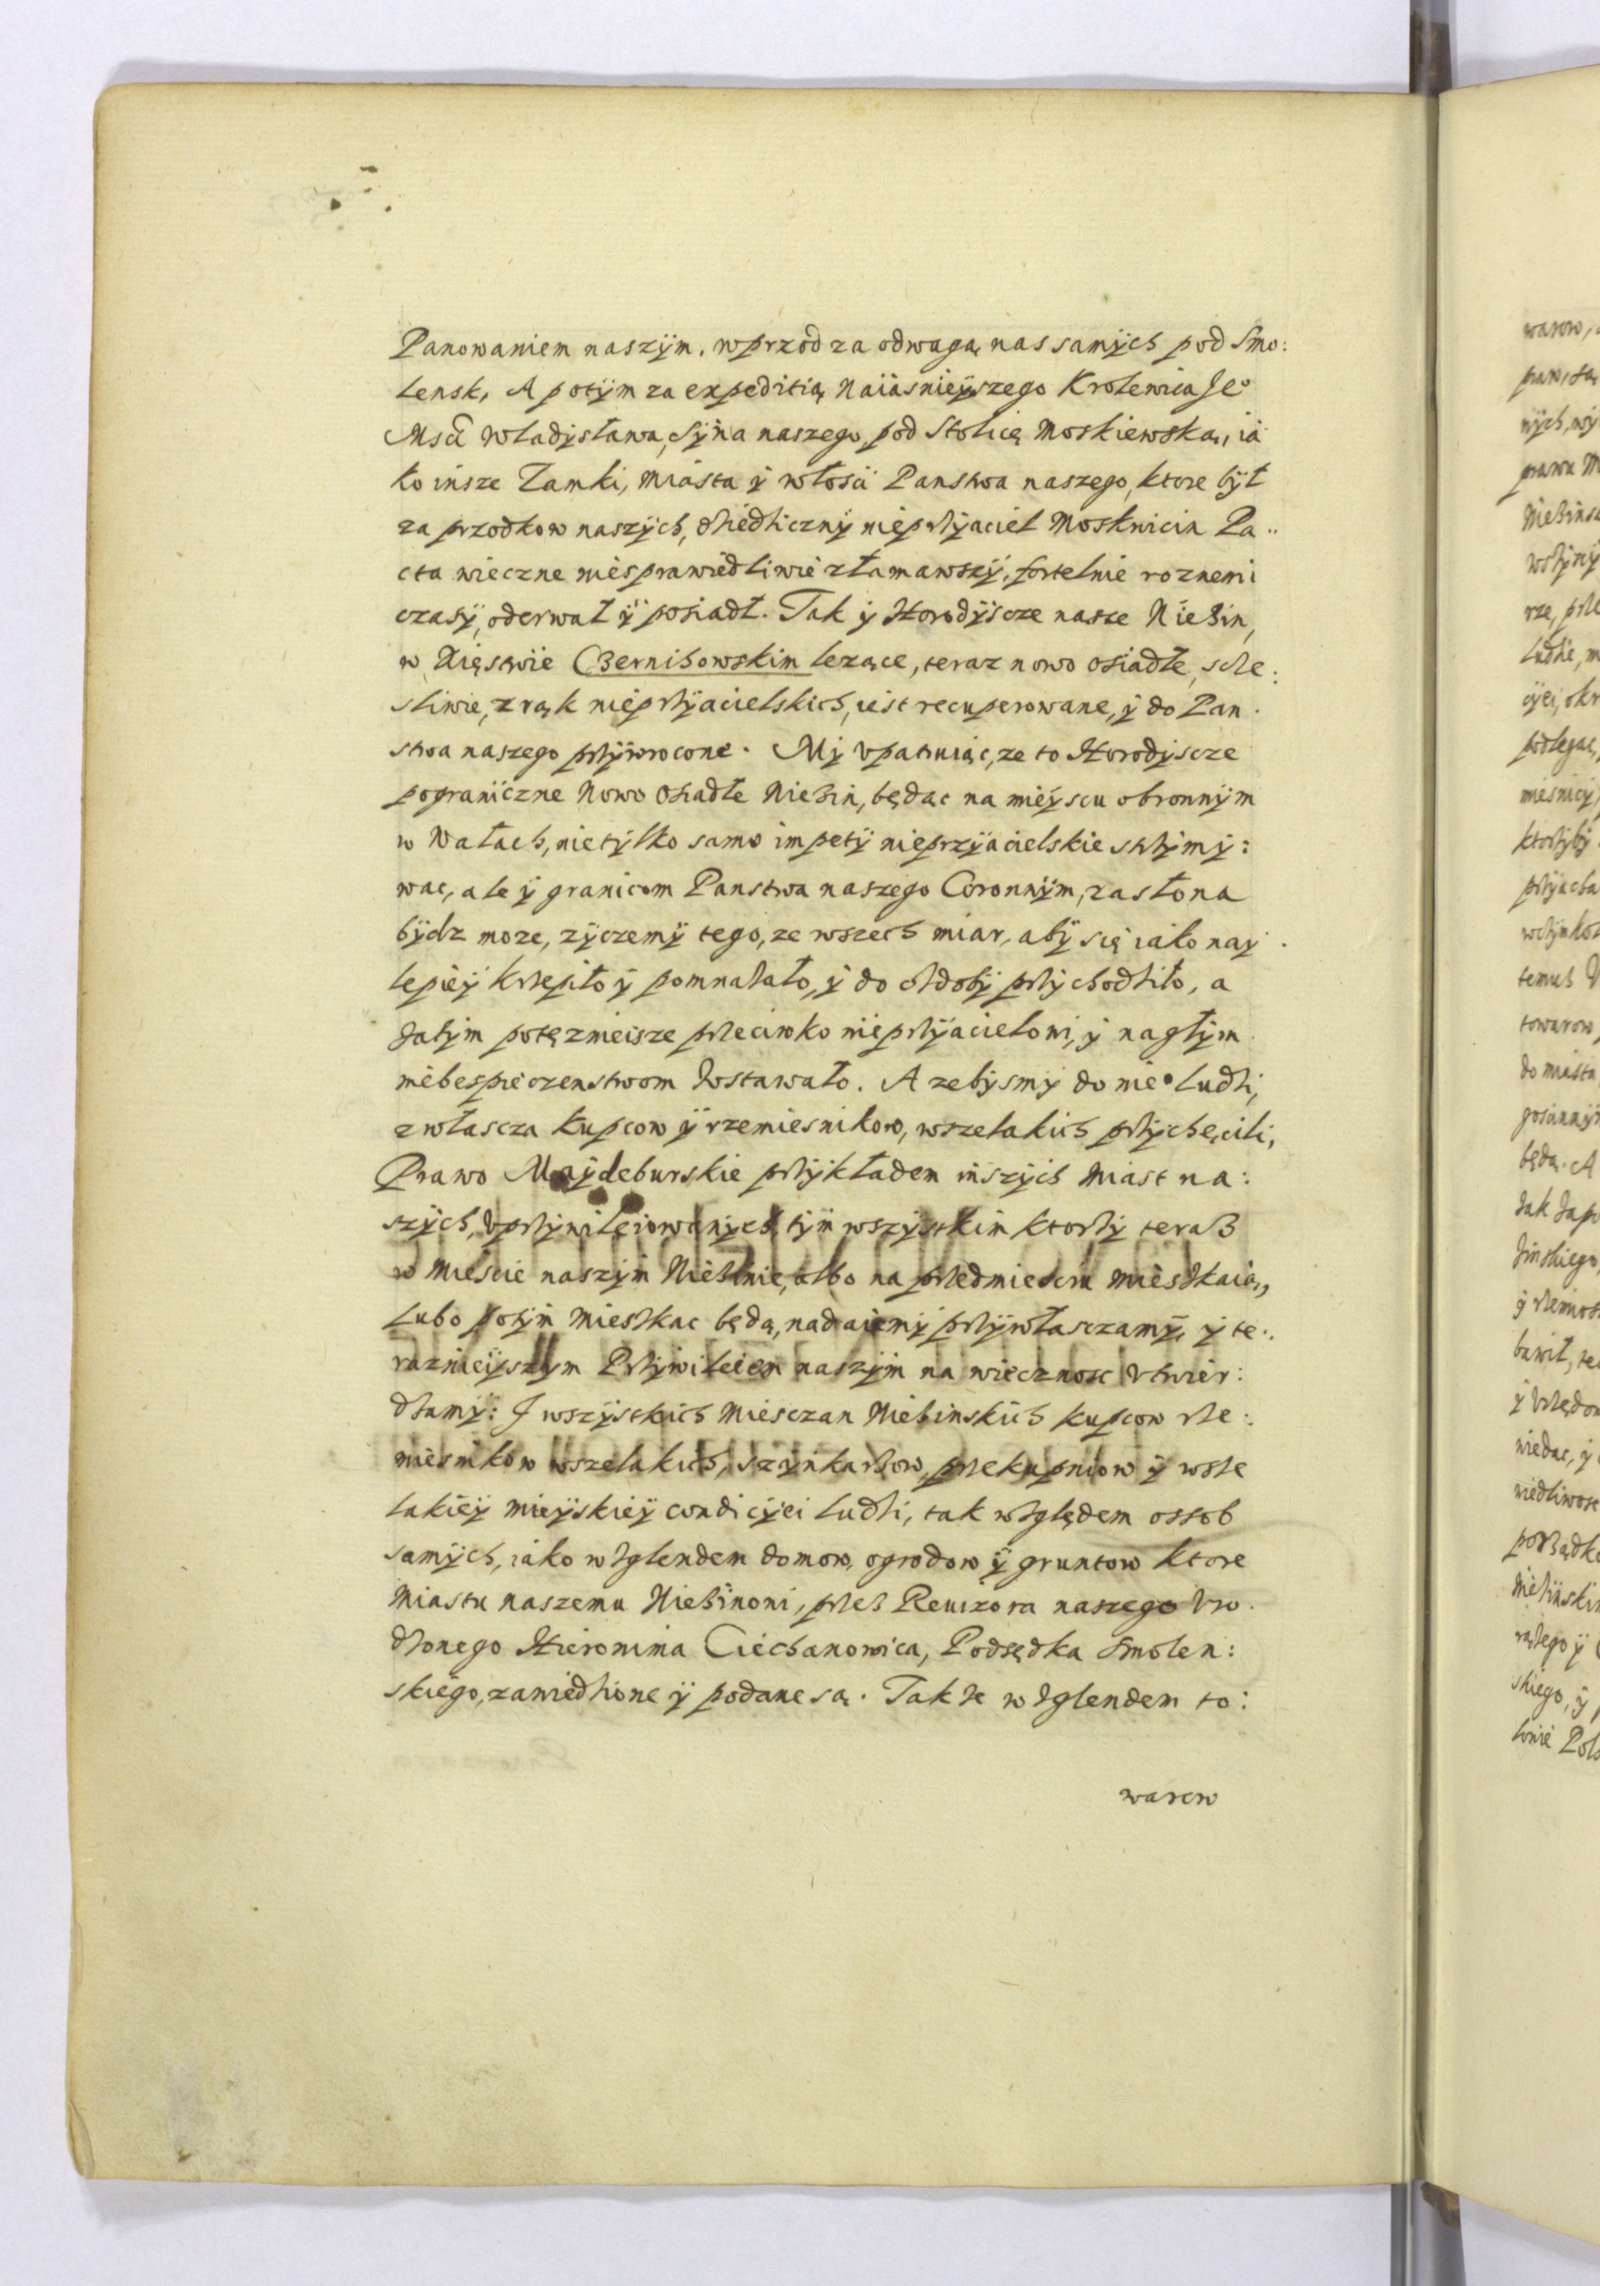 Panowaniem naszÿm, wprzod za odwagą nas samÿch pod Smo:
lensk, A potÿm za expeditią Naiasnieÿszego Krolewica Jeo
Mści Władÿsława, Sÿna naszego, pod Stolicę Moskiewską, ia
ko insze Zamki, Miasta ÿ włosci Panstwa naszego, ktore bÿł
za przodkow naszÿch, dżiedżicznÿ nieprżÿaciel Moskwicin Pa..
cta wieczne niesprawiedliwie złamawszÿ, fortelnie roznemi
czasÿ, oderwał ÿ posiadł. Tak ÿ Horodÿscze nasze Nieżin,
w Xięstwie Czernihowskim lezące, teraz nowo osiadłe, scże:
sliwie, z rąk nieprżÿacielskich, iest recuperowane, ÿ do Pan.
stwa naszego prżÿwrocone. Mÿ vpatruiąc, ze to Horodÿscze
pograniczne Nowo Osiadłe Nieżin, będąc na mieÿscu obronnÿm
w Wałach, nie tÿlko samo impetÿ nieprzÿacielskie strżÿmÿ:
wac, ale ÿ granicom Panstwa naszego Coronnÿm, zasłona
bÿdz moze, zÿczemÿ tego, ze wszech miar, abÿ się iako naÿ
lepieÿ krżepiło ÿ pomnażało, ÿ do ożdobÿ prżÿchodżiło, a
żatÿm potęzniejsze prżeciwko nieprżÿacielowi, ÿ nagłÿm
niebespieczenstwom żostawało. A zebÿsmÿ do nie° ludżi,
zwłascza kupcow ÿ rzemiesnikow, wszelakich prżÿchęcili,
Prawo Maÿdeburskie prżÿkładem inszÿch Miast na:
szÿch, vprżÿwileiowanÿch tÿm wszÿstkim ktorżÿ teraż
w Miescie naszÿm Nieżinie, albo na prżedmiesciu mieszkaią,
lubo potÿm mieszkac będą, nadaiemÿ prżÿwłasczamÿ, ÿ te..
raznieÿszÿm Prżÿwileiem naszÿm na wiecznosc vtwier:
dżamÿ: J wszÿstkich Miesczan Nieżinskich kupcow rże:
miesnikow wszelakich, szÿnkarżow, prżekupniow ÿ wsże
lakieÿ mieÿskieÿ condicÿei ludżi, tak wżględem ossob
samÿch, iako wżglendem domow, ogrodow ÿ gruntow ktore
Miastu naszemu Nieżinowi, prżeż Rewizora naszego Vro.
dżonego Hieronima Ciechanowica, Podsędka Smolen:
skiego, zawiedżione ÿ podane są. Także wżglendem to:
warow